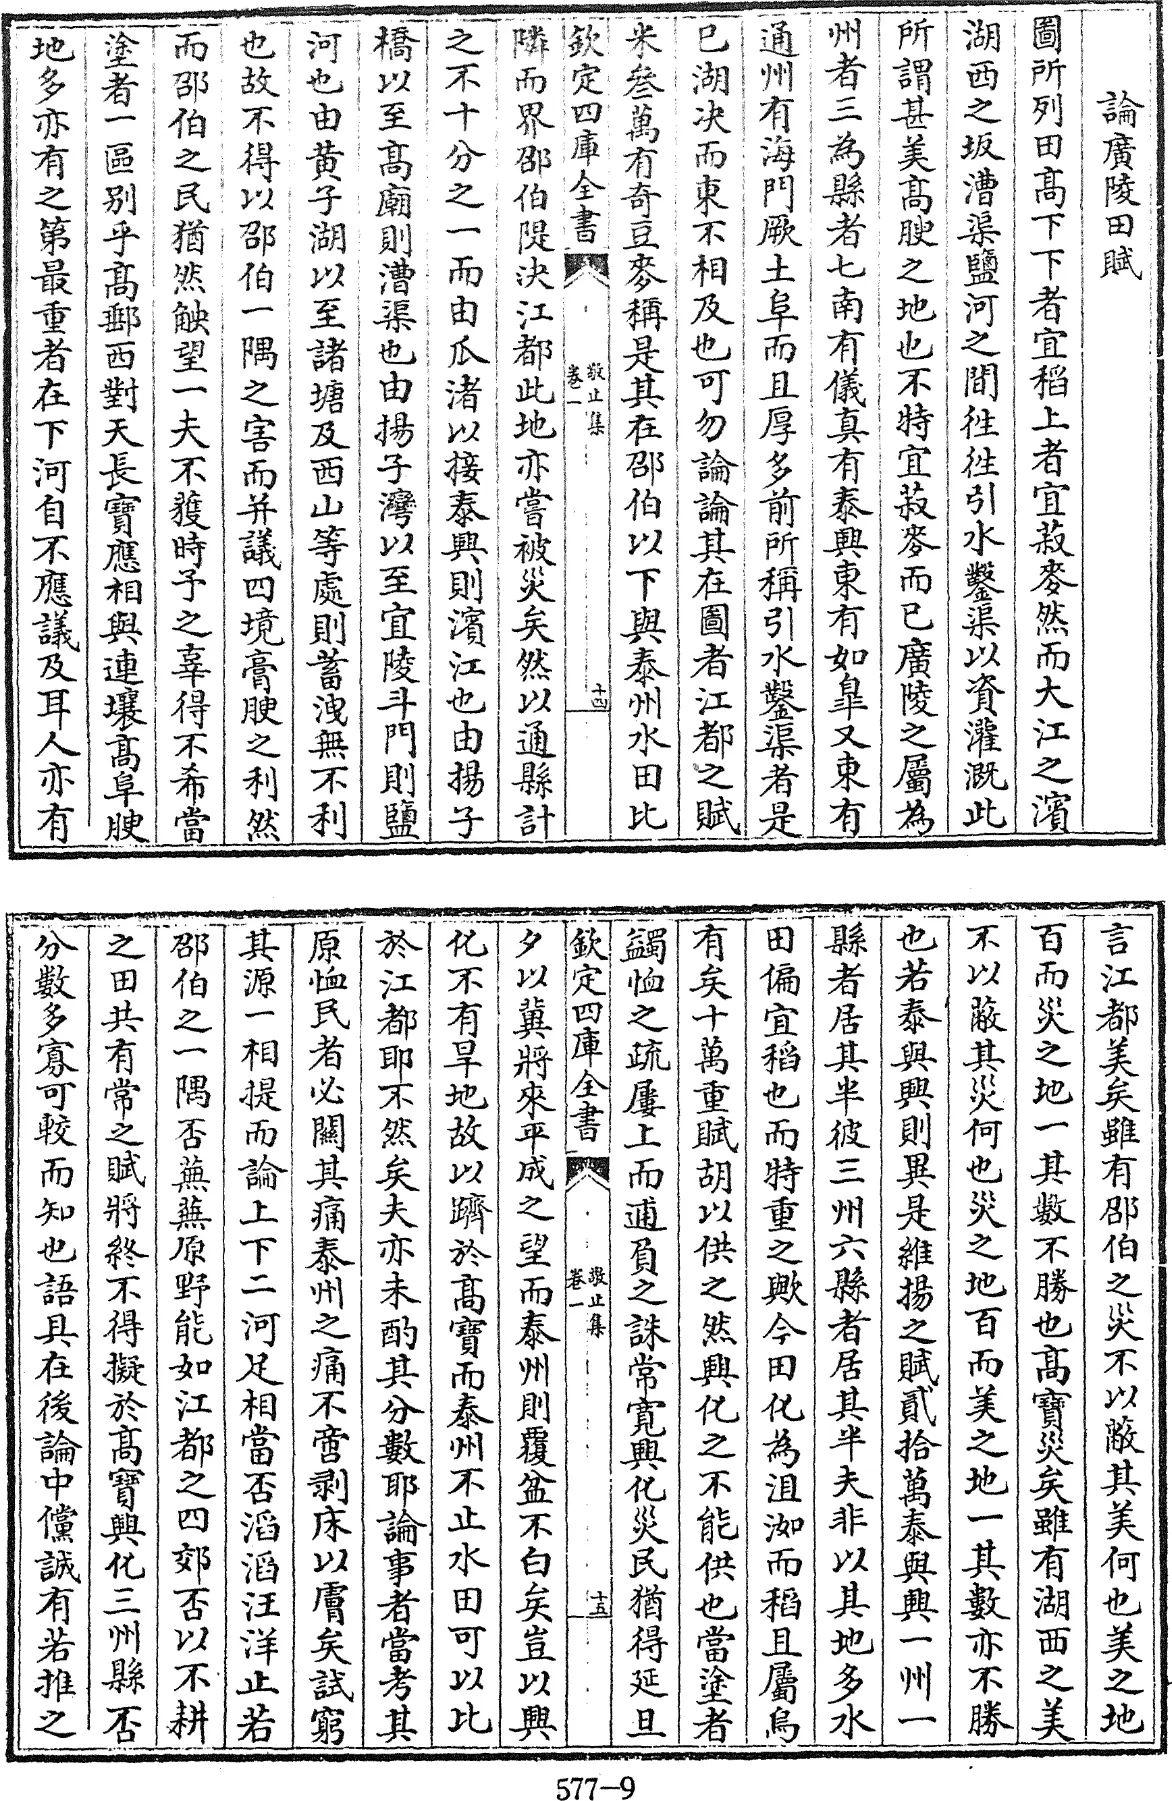 論廣陵田賦
圖所列田高下下者宜稻上者宜菽麥然而大江之濱
湖西之坂漕渠鹽河之間徃徃引水鑿渠以資灌溉此
所謂甚美高腴之地也不特宜菽麥而已廣陵之屬為
州者三為縣者七南有儀真有泰興東有如臯又東有
通州有海門厥土阜而且厚多前所稱引水鑿渠者是
已湖决而東不相及也可勿論論其在圖者江都之賦
米叁萬有奇豆麥稱是其在邵伯以下與泰州水田比
欽定四庫全書
敬止集
卷一
十四
隣而界邵伯隄决江都此地亦嘗被災矣然以通縣計
之不十分之一而由瓜渚以接泰興則濱江也由揚子
橋以至高廟則漕渠也由揚子灣以至宜陵斗門則鹽
河也由黄子湖以至諸塘及西山等處則蓄洩無不利
也故不得以邵伯一隅之害而并議四境膏腴之利然
而邵伯之民猶然觖望一夫不獲時予之辜得不希當
塗者一區别乎高郵西對天長寶應相與連壤高阜腴
地多亦有之第最重者在下河自不應議及耳人亦有
言江都美矣雖有邵伯之災不以蔽其美何也美之地
百而災之地一其數不勝也高寶災矣雖有湖西之美
不以蔽其災何也災之地百而美之地一其數亦不勝
也若泰與興則異是維揚之賦貳拾萬泰與興一州一
縣者居其半彼三州六縣者居其半夫非以其地多水
田偏宜稻也而特重之歟今田化為沮洳而稻且屬烏
有矣十萬重賦胡以供之然興化之不能供也當塗者
蠲恤之疏屢上而逋負之誅常寛興化災民猶得延旦
欽定四庫全書
敬止集
卷一
十五
夕以冀將來平成之望而泰州則覆盆不白矣豈以興
化不有旱地故以躋於高寶而泰州不止水田可以比
於江都耶不然矣夫亦未酌其分數耶論事者當考其
原恤民者必關其痛泰州之痛不啻剥床以膚矣試窮
其源一相提而論上下二河足相當否滔滔汪洋止若
邵伯之一隅否蕪蕪原野能如江都之四郊否以不耕
之田共有常之賦將終不得擬於高寶興化三州縣否
分數多寡可較而知也語具在後論中儻誠有若推之
577-9